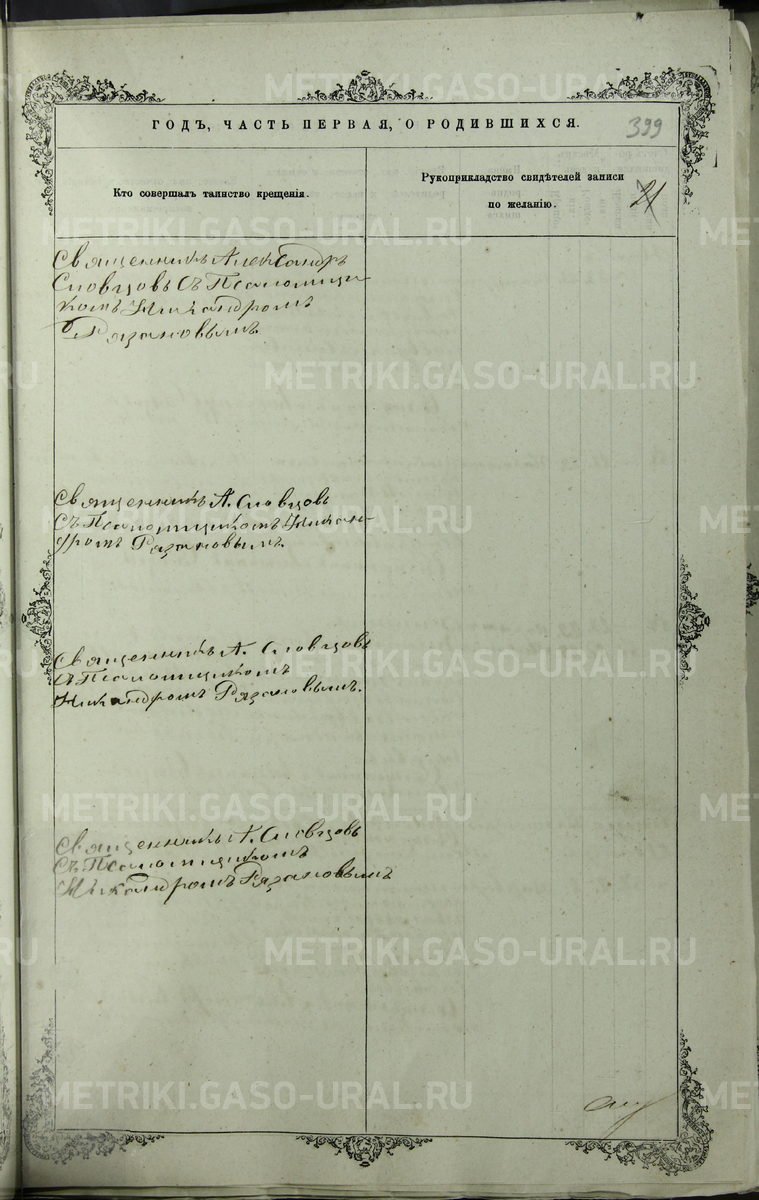 ГОДЪ, ЧАСТЬ ПЕРВАЯ, О РОДИВШИХСЯ.
399
Кто совершалъ таинство крещенія.
Рукоприкладство свидѣтелей записи
по желанію.
21
Священникъ Александръ
Словцовъ съ Псаломщи-
комъ Никандромъ
Рязановымъ
Священникъ А. Словцовъ
съ Псаломщикомъ Никан-
дромъ Рязановымъ.
Священникъ А. Словцовъ
съ Псаломщикомъ
Никандромъ Рязановымъ.
Священникъ А. Словцовъ
съ Псаломщикомъ
Никандромъ Рязановымъ
METRIKI.GASO-URAL.RU